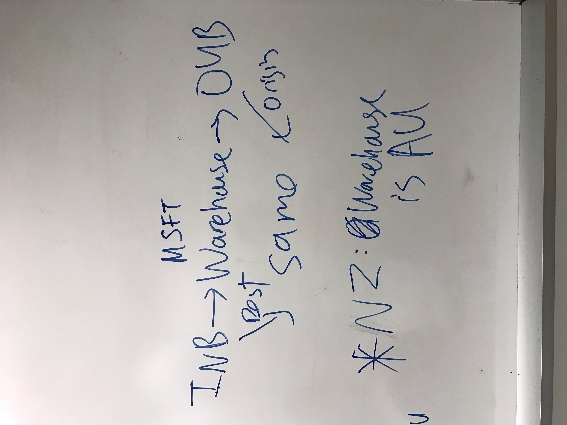 MSFT
INB → Warehouse → OUB
Dest Origin
same
*NZ: Warehouse
is AU